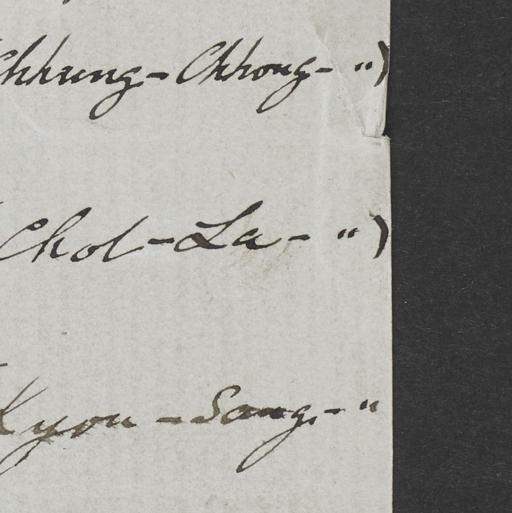 Chhung-Chhong- ")
Chol-La- ")
Kyou-Sang,- "